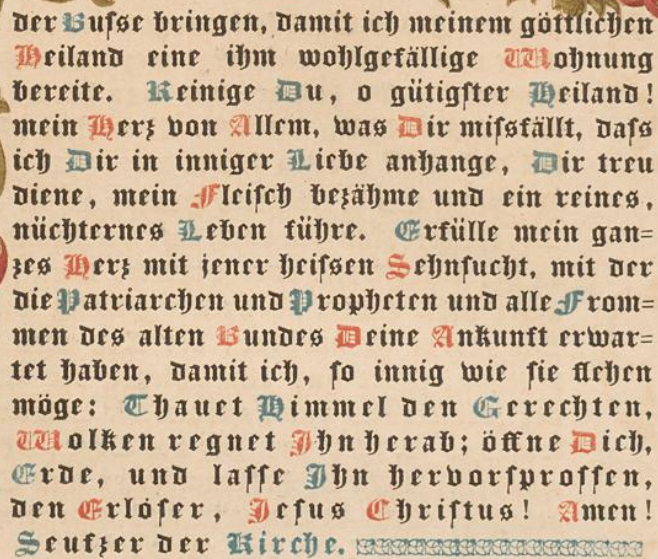 der Bufse bringen, damit ich meinem göttlichen
Heiland eine ihm wohlgefällige Wohnung
bereite. Reinige Du, o gütigster Heiland!
mein Herz von Allem, was Dir mifsfällt, dafs
ich Dir in inniger Liebe anhange, Dir treu
diene, mein Fleisch bezähme und ein reines,
nüchternes Leben führe. Erfülle mein gan=
zes Herz mit jener heissen Sehnsucht, mit der
die Patriarchen und Propheten und alle From=
men des alten Bundes Deine Ankunft erwar=
tet haben, damit ich, so innig wie sie flehen
möge: Thauet Himmel den Gerechten,
Wolken regnet Ihn herab; öffne Dich,
Erde, und lasse Ihn hervorsprossen,
den Erlöser, Jesus Christus! Amen!
Seufzer der Kirche.